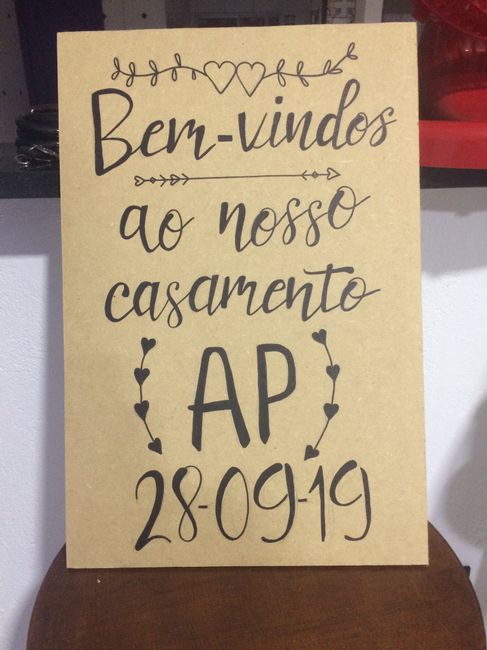 Bem-vindos
ao nosso
casamento
AP
28-09-19